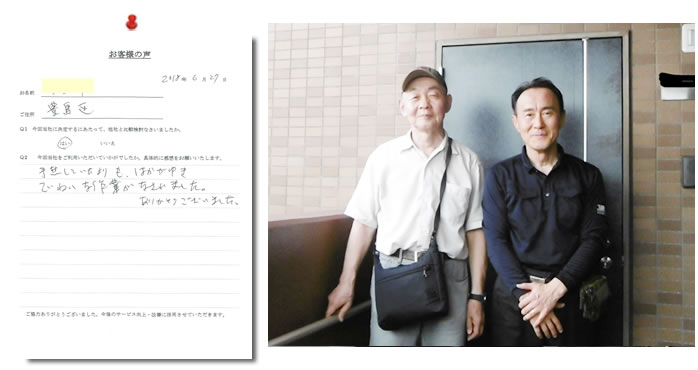 お客様の声
2018年6月27日
お名前
ご住所 豊島区
Q1 今回当社に決定するにあたって、他社と比較検討なさいましたか。
はい いいえ
Q2 今回当社をご利用いただいていかがでしたか。具体的に感想をお願いいたします。
予想していたよりも、はかがゆき
ていねいな作業がなされました。
ありがとうございました。
ご協力ありがとうございました。今後のサービス向上・改善に活用させていただきます。